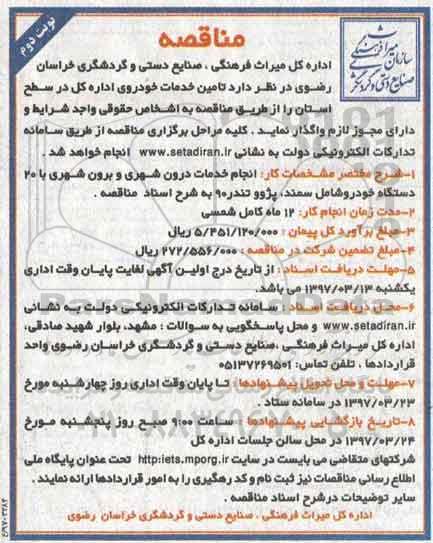 نوبت دوم
مناقصه
سازمان میراث فرهنگی
صنایع دستی و گردشگری
اداره کل میراث فرهنگی ، صنایع دستی و گردشگری خراسان
رضوی در نظر دارد تامین خدمات خودروی اداره کل در سطح
استان را از طریق مناقصه به اشخاص حقوقی واجد شرایط و
دارای مجوز لازم واگذار نماید . کلیه مراحل برگزاری مناقصه از طریق سامانه
تدارکات الکترونیکی دولت به نشانی www.setadiran.ir انجام خواهد شد .
۱-شرح مختصر مشخصات کار: انجام خدمات درون شهری و برون شهری با ۲۰
دستگاه خودروشامل سمند، پژوو تندر۹۰ به شرح اسناد مناقصه .
۲-مدت زمان انجام کار: ۱۲ ماه کامل شمسی
۳-مبلغ برآورد کل پیمان : ۵/۴۵۱/۱۲۰/۰۰۰ ریال
۴-مبلغ تضمین شرکت در مناقصه : ۲۷۲/۵۵۶/۰۰۰ ریال
۵-مهلت دریافت اسناد : از تاریخ درج اولین آگهی لغایت پایان وقت اداری
یکشنبه ۱۳۹۷/۰۳/۱۳ می باشد.
۶-محل دریافت اسناد : سامانه تدارکات الکترونیکی دولت به نشانی
www.setadiran.ir و محل پاسخگویی به سوالات : مشهد، بلوار شهید صادقی،
اداره کل میراث فرهنگی ،صنایع دستی و گردشگری خراسان رضوی واحد
قراردادها ، تلفن تماس: ۰۵۱۳۷۲۶۹۵۰۱
۷-مهلت و محل تحویل پیشنهادها : تا پایان وقت اداری روز چهارشنبه مورخ
۱۳۹۷/۰۳/۲۳ در سامانه ستاد .
۸-تاریخ بازگشایی پیشنهادها : ساعت ۹:۰۰ صبح روز پنجشنبه مورخ
۱۳۹۷/۰۳/۲۴ در محل سالن جلسات اداره کل
شرکتهای متقاضی می بایست در سایت http:iets.mporg.ir تحت عنوان پایگاه ملی
اطلاع رسانی مناقصات نیز ثبت نام و کد رهگیری را به امور قراردادها ارائه نمایند .
سایر توضیحات درشرح اسناد مناقصه .
اداره کل میراث فرهنگی ، صنایع دستی و گردشگری خراسان رضوی